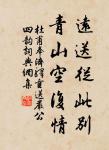 遠送從此別
青山空復情
杜甫奉濟驛重送嚴公
四韻詞典網集